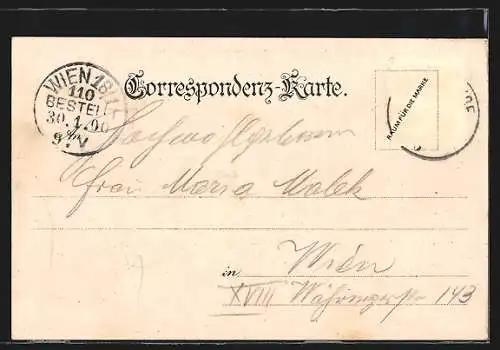 WIEN 18/1
110
BESTELLT
30.1.00
9 V
Correspondenz-Karte.
RAUM FÜR DIE MARKE
Hochwohlgeboren
Frau Maria Malek
in Wien
XVIII Währingerstr 143